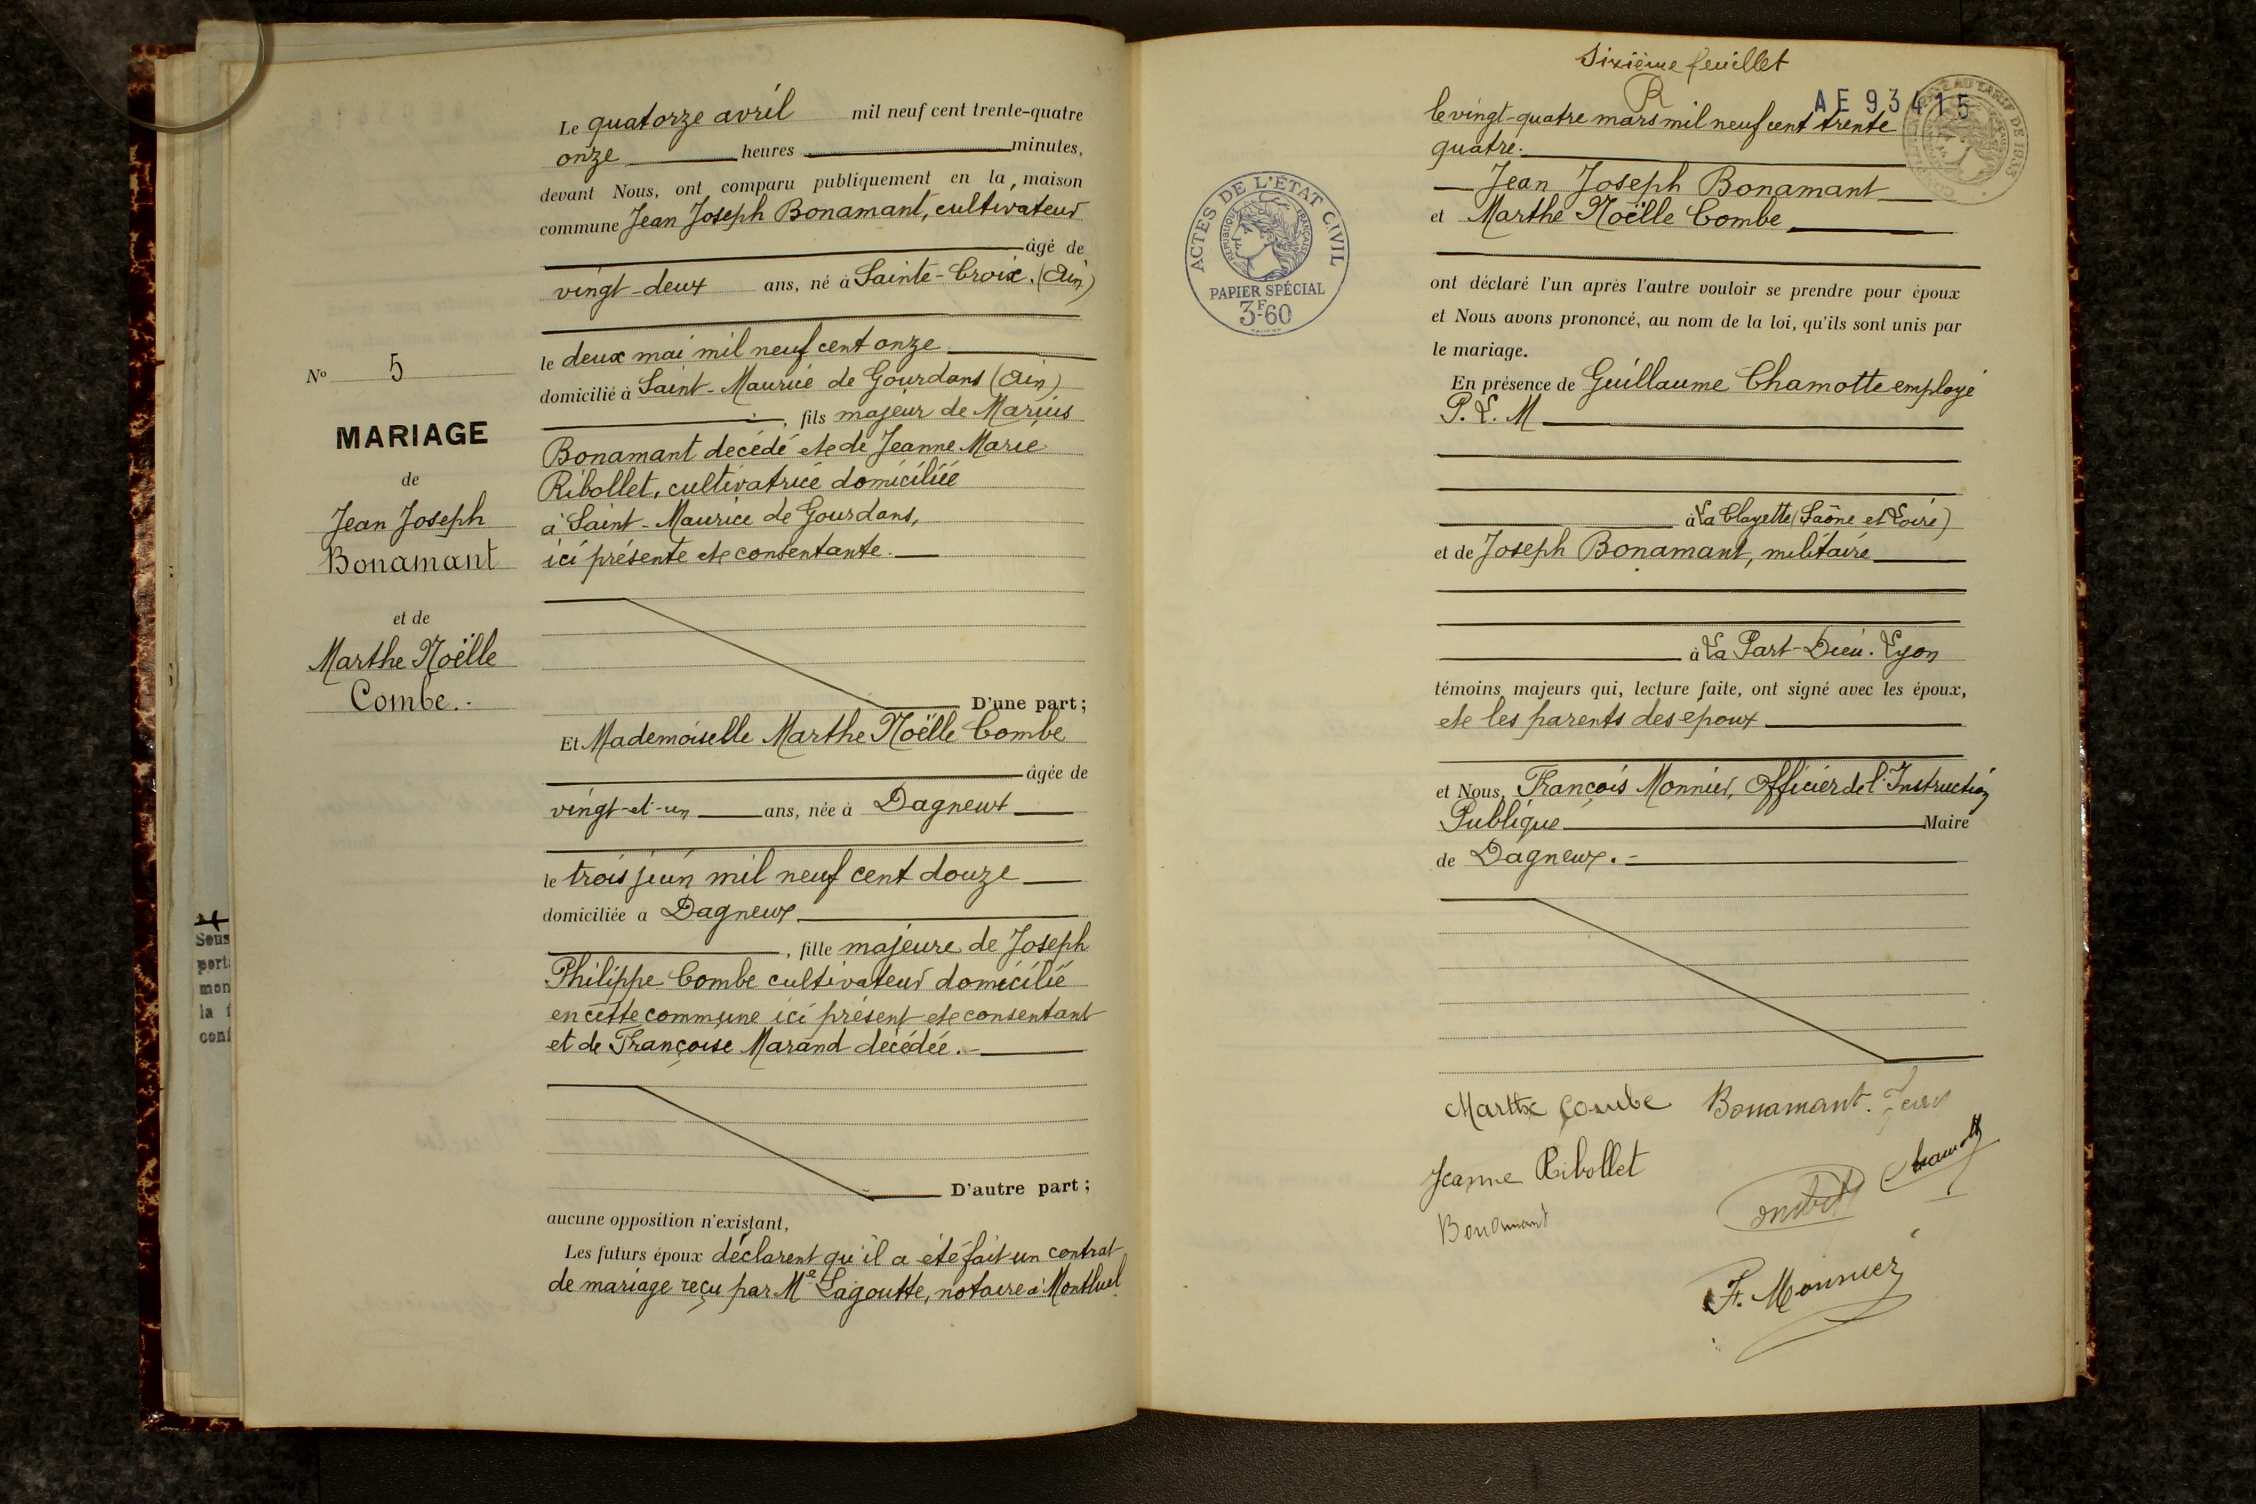 Le quatorze avril mil neuf cent trente-quatre
onze heures minutes,
devant Nous, ont comparu publiquement en la maison
commune Jean Joseph Bonamant, cultivateur
âgé de
vingt-deux ans, né à Sainte-Croix. (Ain)
le deux mai mil neuf cent onze
domicilié à Saint-Maurice de Gourdans (Ain)
, fils majeur de Marius
Bonamant décédé et de Jeanne Marie
Ribollet, cultivatrice domiciliée
à Saint-Maurice de Gourdans,
ici présente et consentante.
D'une part ;
Et Mademoiselle Marthe Noëlle Combe
âgée de
vingt-et-un ans, née à Dagneux
le trois juin mil neuf cent douze
domiciliée à Dagneux
, fille majeure de Joseph
Philippe Combe cultivateur domicilié
en cette commune ici présent et consentant
et de Françoise Marand décédée.-
D'autre part ;
aucune opposition n'existant,
Les futurs époux déclarent qu'il a été fait un contrat
de mariage reçu par Me Lagoutte, notaire à Montluel
No 5
MARIAGE
de
Jean Joseph
Bonamant
et de
Marthe Noëlle
Combe.
Sous
port
mon
la
Sixième feuillet
R
AE 93415
le vingt-quatre mars mil neuf cent trente
quatre.
Jean Joseph Bonamant
et Marthe Noëlle Combe
ont déclaré l'un après l'autre vouloir se prendre pour époux
et Nous avons prononcé, au nom de la loi, qu'ils sont unis par
le mariage.
En présence de Guillaume Chamotte employé
P.L.M
à La Clayette (Saône et Loire)
et de Joseph Bonamant, militaire
à La Part-Dieu. Lyon
témoins majeurs qui, lecture faite, ont signé avec les époux,
et les parents des epoux
et Nous, François Monnier, Officier de l'Instruction
Publique Maire
de Dagneux.-
Marthe Combe Bonamant. Jean
Jeanne Ribollet
Bonamant
F. Monnier
ACTES DE L'ÉTAT CIVIL
RÉPUBLIQUE FRANÇAISE
PAPIER SPÉCIAL
3F60